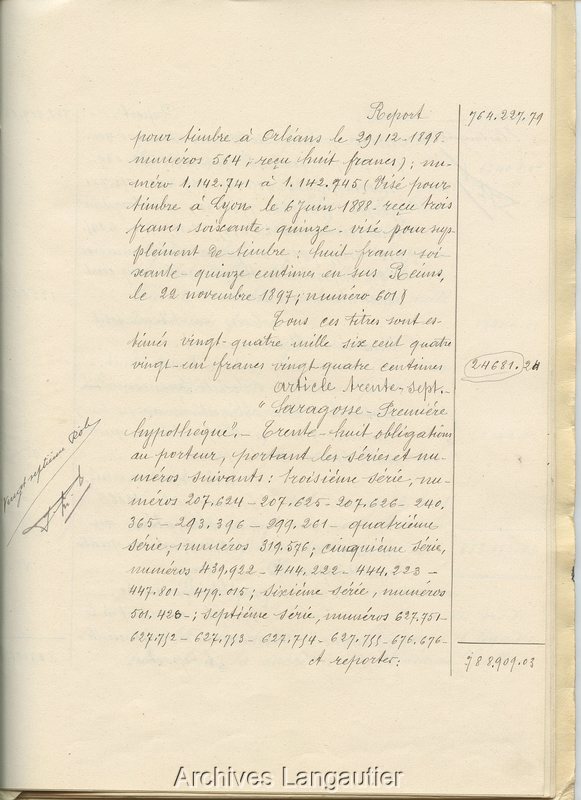 Report 764.227.79
pour timbre à Orléans le 29/12-1898.
numéros 564, reçu huit francs); nu-
méro 1.142.741 à 1.142.745 (Visé pour
timbre à Lyon le 6 Juin 1888- reçu trois
francs soixante-quinze- visé pour sup-
plément de timbre: huit francs soi-
xante-quinze centimes en sus Reims,
le 22 novembre 1897; numéro 601)
Tous ces titres sont es-
timés vingt-quatre mille six cent quatre
vingt-un francs vingt quatre centimes 24681.24
article trente-sept.-
"Saragosse-Première
hypothèque".- Trente-huit obligations
au porteur, portant les séries et nu-
méros suivants: troisième série, nu-
méros 207.624-207.625-207.626-240.
365-293.396-299.261- quatrième
série, numéros 319.576; cinquième série,
numéros 439.922-444.222-444.223-
447.801-479.015; sixième série, numéros
501.428-; septième série, numéros 627.751-
627.752-627.753-627.754-627.755-676.676-
A reporter. 788.909.03
Vingt septième Rôle
Archives Langautier